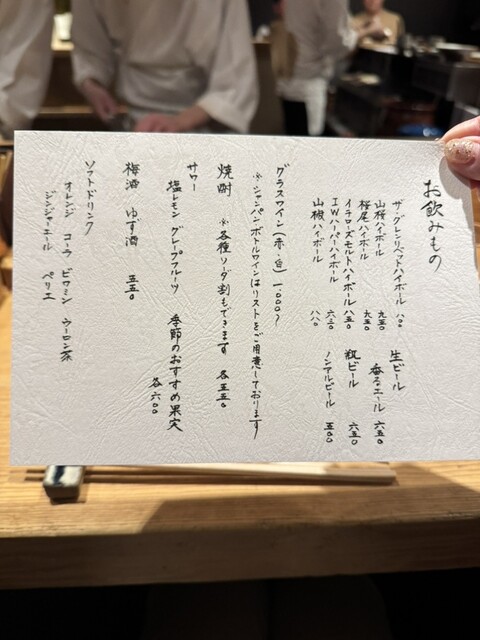 お飲みもの
生ビール
香るエール 六五〇
瓶ビール 六五〇
ノンアルビール 五〇〇
ザ・グレンリベットハイボール
山桜ハイボール 九五〇
桜尾ハイボール 七五〇
イチローズモルトハイボール 八五〇
I.W.ハーパーハイボール 六三〇
山椒ハイボール 八八〇
グラスワイン(赤・白) 一、〇〇〇〜
※シャンパン、ボトルワインはリストをご用意しております
焼酎 ※各種ソーダ割もできます 各五五〇
サワー
塩レモン グレープフルーツ 季節のおすすめ果実
各六〇〇
梅酒 ゆず酒 五五〇
ソフトドリンク
オレンジ コーラ ビワミン ウーロン茶
ジンジャエール ペリエ